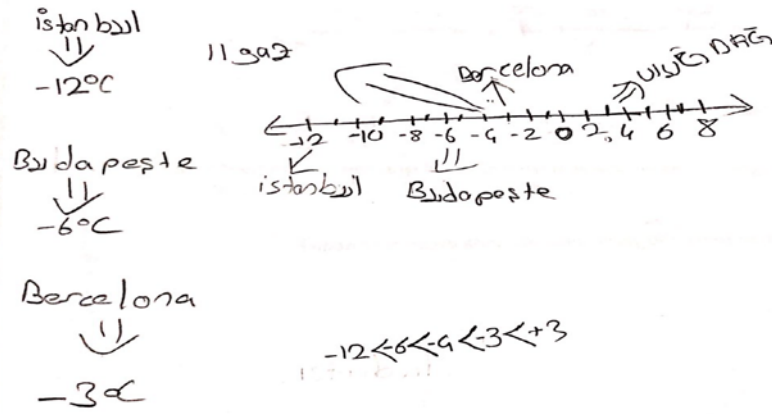 istanbul
-12°C
Budapeşte
-6°C
Bercelona
-3°C
Ilgaz
Barcelona
ULUĞ DAĞ
-12 -10 -8 -6 -4 -2 0 2 4 6 8
istanbul Budapeşte
-12<-6<-4<-3<+3